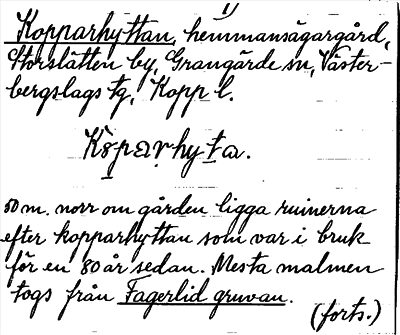 1)
Kopparhyttan, hemmansägargård,
Storslätten by, Grangärde sn, Väster-
bergslags tg, Kopp l.
Kåparhyta.
50 m. norr om gården ligga ruinerna
efter kopparhyttan som var i bruk
för en 80 år sedan. Mesta malmen
togs från Fagerlid gruvan.
(forts.)